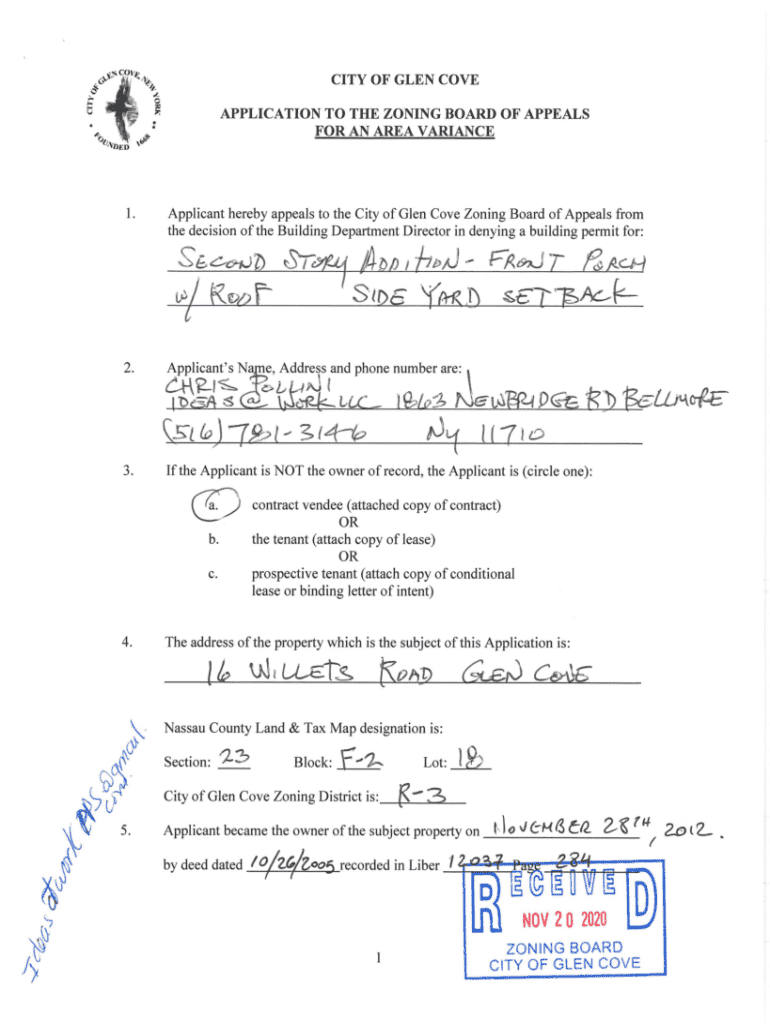 CITY OF GLEN COVE, NEW YORK
FOUNDED 1668
CITY OF GLEN COVE
APPLICATION TO THE ZONING BOARD OF APPEALS
FOR AN AREA VARIANCE
1. Applicant hereby appeals to the City of Glen Cove Zoning Board of Appeals from
the decision of the Building Department Director in denying a building permit for:
SECOND STORY ADDITION - FRONT PORCH
w/ ROOF SIDE YARD SETBACK
2. Applicant's Name, Address and phone number are:
CHRIS POLLINI
IDEAS @ WORK LLC 1863 NEWBRIDGE RD BELLMORE
(516) 781-3146 NY 11710
3. If the Applicant is NOT the owner of record, the Applicant is (circle one):
a. contract vendee (attached copy of contract)
OR
b. the tenant (attach copy of lease)
OR
c. prospective tenant (attach copy of conditional
lease or binding letter of intent)
4. The address of the property which is the subject of this Application is:
16 WILLETS ROAD GLEN COVE
Nassau County Land & Tax Map designation is:
Section: 23 Block: F-2 Lot: 18
City of Glen Cove Zoning District is: R-3
5. Applicant became the owner of the subject property on NOVEMBER 28TH, 2012.
by deed dated 10/26/2005 recorded in Liber 12037 Page 284
RECEIVED
NOV 20 2020
ZONING BOARD
CITY OF GLEN COVE
1
Ideas at work